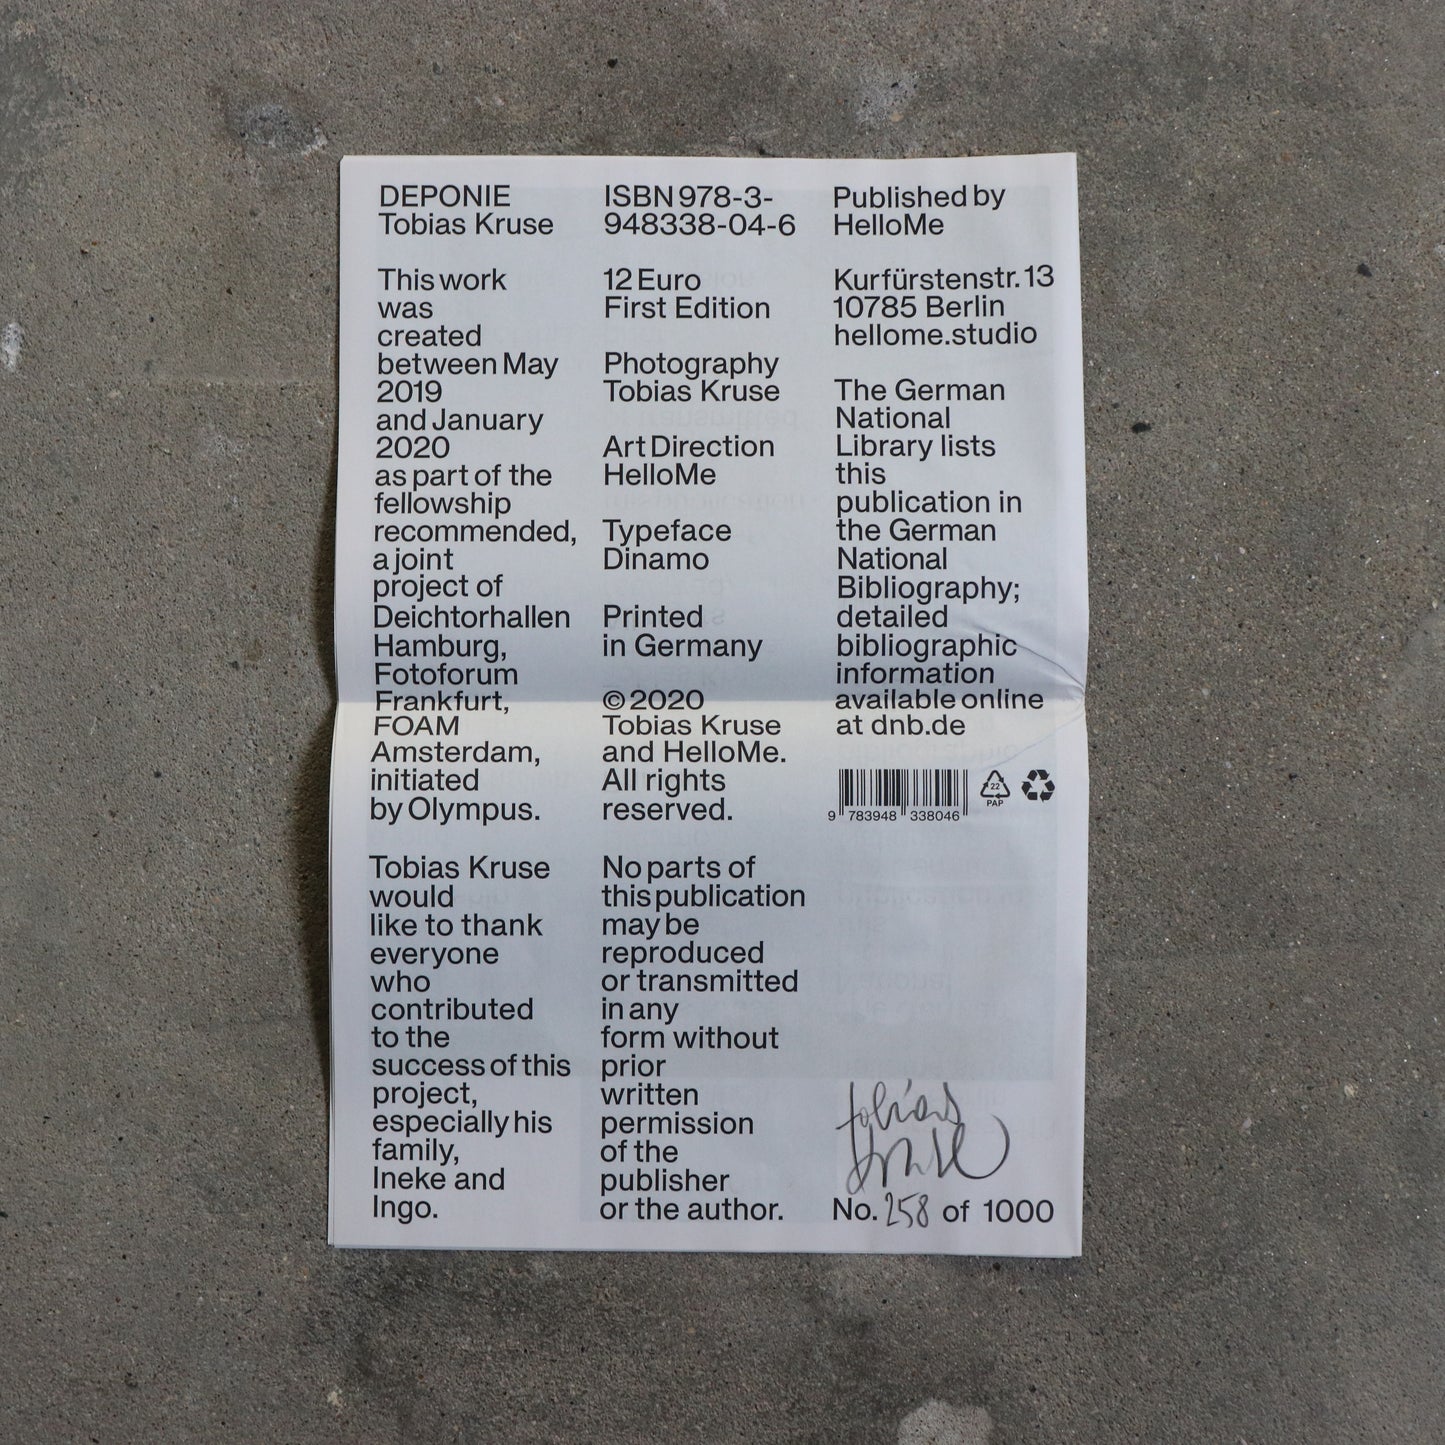 DEPONIE
Tobias Kruse
This work
was
created
between May
2019
and January
2020
as part of the
fellowship
recommended,
a joint
project of
Deichtorhallen
Hamburg,
Fotoforum
Frankfurt,
FOAM
Amsterdam,
initiated
by Olympus.
Tobias Kruse
would
like to thank
everyone
who
contributed
to the
success of this
project,
especially his
family,
Ineke and
Ingo.
ISBN 978-3-
948338-04-6
12 Euro
First Edition
Photography
Tobias Kruse
Art Direction
HelloMe
Typeface
Dinamo
Printed
in Germany
© 2020
Tobias Kruse
and HelloMe.
All rights
reserved.
No parts of
this publication
may be
reproduced
or transmitted
in any
form without
prior
written
permission
of the
publisher
or the author.
Published by
HelloMe
Kurfürstenstr. 13
10785 Berlin
hellome.studio
The German
National
Library lists
this
publication in
the German
National
Bibliography;
detailed
bibliographic
information
available online
at dnb.de
9 783948 338046
22
PAP
tobias
kruse
No. 258 of 1000